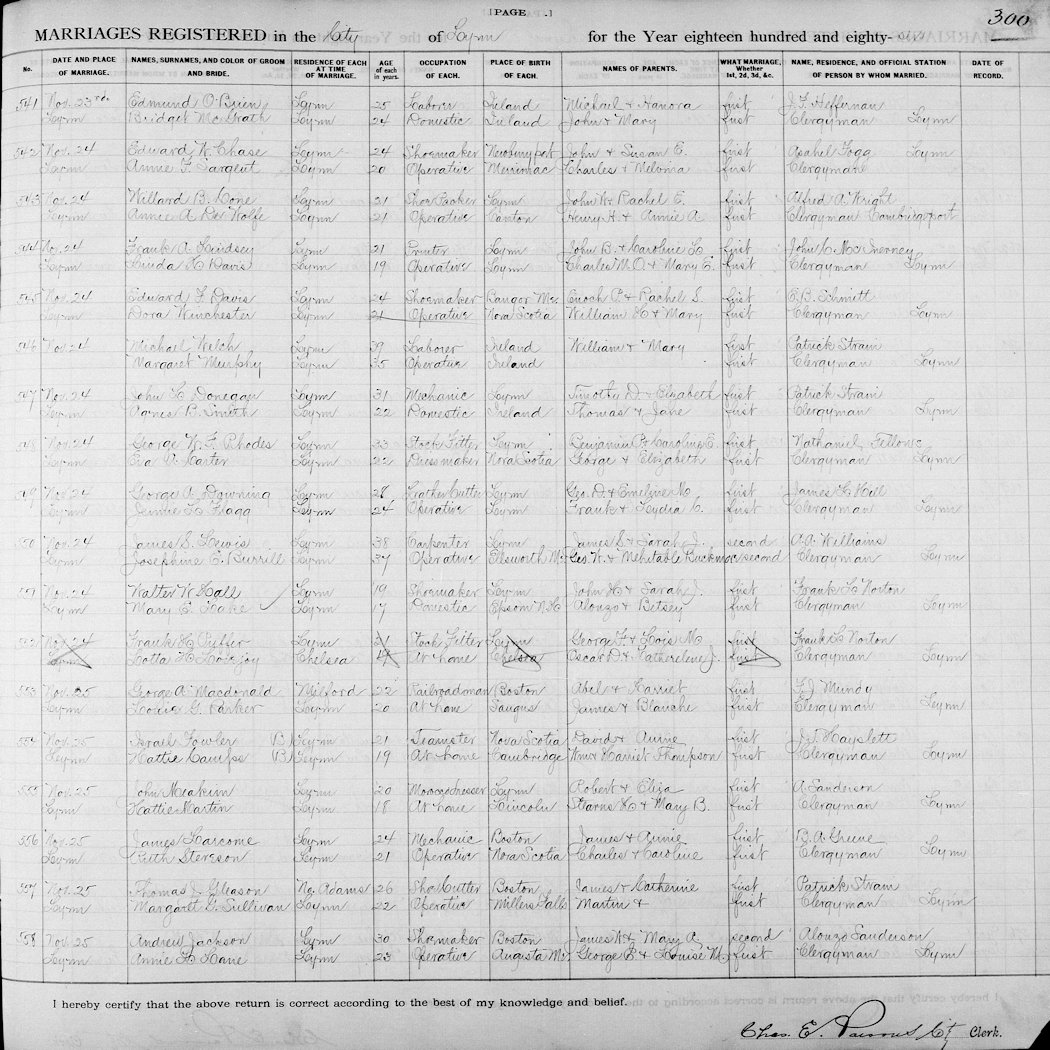 [PAGE .]
300
MARRIAGES REGISTERED in the City of Lynn for the Year eighteen hundred and eighty-six
No. DATE AND PLACE OF MARRIAGE. NAMES, SURNAMES, AND COLOR OF GROOM AND BRIDE. RESIDENCE OF EACH AT TIME OF MARRIAGE. AGE of each in years. OCCUPATION OF EACH. PLACE OF BIRTH OF EACH. NAMES OF PARENTS. WHAT MARRIAGE, Whether 1st, 2d, 3d, &c. NAME, RESIDENCE, AND OFFICIAL STATION OF PERSON BY WHOM MARRIED. DATE OF RECORD.
541 Nov. 23rd Edmund O'Brien Lynn 25 Laborer Ireland Michael & Hanora first J. F. Heffernan
Lynn Bridget McGrath Lynn 24 Domestic Ireland John & Mary first Clergyman Lynn
542 Nov. 24 Edward W. Chase Lynn 24 Shoemaker Newburyport John & Susan E. first Asahel Fogg Lynn
Lynn Annie F. Sargent Lynn 20 Operative Merrimac Charles & Melonia first Clergyman
543 Nov. 24 Willard B. Lynn 21 Shoe Packer Lynn John W. & Rachel E. first Alfred A. Wright
Lynn Annie A. De Wolfe Lynn 21 Operative Canton Henry H. & Annie A. first Clergyman Cambridgeport
544 Nov. 24 Frank A. Lindsey Lynn 21 Printer Lynn John B. & Caroline L. first John C. McInerney
Lynn Linda H. Davis Lynn 19 Operative Lynn Charles M. O. & Mary E. first Clergyman Lynn
545 Nov. 24 Edward F. Davis Lynn 24 Shoemaker Bangor Me. Enoch P. & Rachel S. first E. B. Schmitt
Lynn Dora Winchester Lynn 21 Operative Nova Scotia William H. & Mary first Clergyman Lynn
546 Nov. 24 Michael Welch Lynn 39 Laborer Ireland William & Mary first Patrick Strain
Margaret Murphy Lynn 35 Operative Ireland first Clergyman Lynn
547 Nov. 24 John L. Donegan Lynn 31 Mechanic Lynn Timothy D. & Elizabeth first Patrick Strain
Lynn Agnes B. Smith Lynn 22 Domestic Ireland Thomas & Jane first Clergyman Lynn
548 Nov. 24 George W. F. Rhodes Lynn 33 Stock Fitter Lynn Benjamin P. & Caroline E. first Nathaniel Fellows
Lynn Eva A. Harter Lynn 22 Dressmaker Nova Scotia George & Elizabeth first Clergyman Lynn
549 Nov. 24 George A. Downing Lynn 28 Leather Cutter Lynn Geo. D. & Emeline M. first James L. Hill
Lynn Jennie L. Flagg Lynn 24 Operative Lynn Frank & Lydia C. first Clergyman Lynn
550 Nov. 24 James S. Lewis Lynn 38 Carpenter Lynn James S. & Sarah J. second A. A. Williams
Lynn Josephine E. Burrill Lynn 37 Operative Ellsworth Me. Geo. W. & Mehitable Buckmore second Clergyman Lynn
551 Nov. 24 Walter W. Hall Lynn 19 Shoemaker Lynn John H. & Sarah J. first Frank L. Norton
Lynn Mary E. Lake Lynn 17 Domestic Epsom N.H. Alonzo & Betsey first Clergyman Lynn
552 Nov. 24 Frank H. Puffer Lynn 21 Stock Fitter Lynn George F. & Lois M. first Frank L. Norton
Lynn Lotta H. Lovejoy Chelsea 19 At home Chelsea Oscar D. & Catherlene J. first Clergyman Lynn
553 Nov. 25 George A. Macdonald Milford 22 Railroadman Boston Abel & Harriet first F. J. Mundy
Lynn Louie G. Parker Lynn 20 At home Saugus James & Blanche first Clergyman Lynn
554 Nov. 25 Israel Fowler (B) Lynn 21 Teamster Nova Scotia David & Annie first J. F. Hayslett
Lynn Hattie Camps (B) Lynn 19 At home Cambridge Wm & Harriet Thompson first Clergyman Lynn
555 Nov. 25 John Meakim Lynn 20 Moroccodresser Lynn Robert & Eliza first A. Sanderson
Lynn Hattie Martin Lynn 18 At home Lincoln Stearns H. & Mary B. first Clergyman Lynn
556 Nov. 25 James Larcome Lynn 24 Mechanic Boston James & Annie first B. A. Greene
Lynn Ruth Stevson Lynn 21 Operative Nova Scotia Charles & Caroline first Clergyman Lynn
557 Nov. 25 Thomas J. Gleason No. Adams 26 Shoe Cutter Boston James & Catherine first Patrick Strain
Lynn Margaret G. Sullivan Lynn 22 Operative Millers Falls Martin & first Clergyman Lynn
558 Nov. 25 Andrew Jackson Lynn 30 Shoemaker Boston James W. & Mary A. second Alonzo Sanderson
Lynn Annie H. Lane Lynn 23 Operative Augusta Me. George E. & Louise M. first Clergyman Lynn
I hereby certify that the above return is correct according to the best of my knowledge and belief.
Chas. E. Parsons City Clerk.